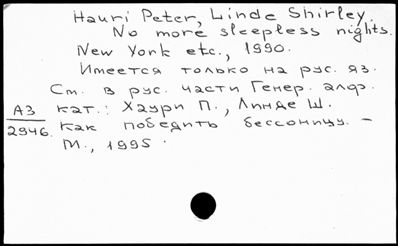 Hauri Peter, Linde Shirley.
No more sleepless nights.
New York etc., 1990.
Имеется только на рус. яз.
См. в рус. части Генер. алф.
кат.: Хаури П., Линде Ш.
АЗ
2946.
Как победить бессоницу. –
М., 1995.